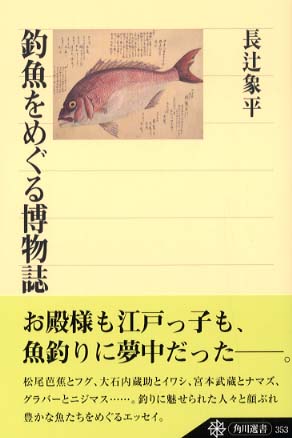 長辻象平
釣魚をめぐる博物誌
お殿様も江戸っ子も、
魚釣りに夢中だった――。
松尾芭蕉とフグ、大石内蔵助とイワシ、宮本武蔵とナマズ、
グラバーとニジマス……。釣りに魅せられた人々と顔ぶれ
豊かな魚たちをめぐるエッセイ。
角川選書 353